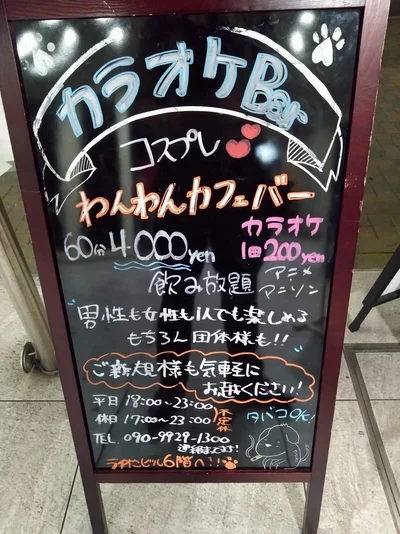 カラオケBar
コスプレ
わんわんカフェバー
60分4000yen
カラオケ
1曲200yen
飲み放題
アニメ
アニソン
男性も女性も1人でも楽しめる
もちろん団体様も!!
ご新規様も気軽に
お越しください!
平日 18:00~23:00
休日 17:00~23:00
不定休
タバコOK!
TEL 090-9929-1300
ビル6階へ!!